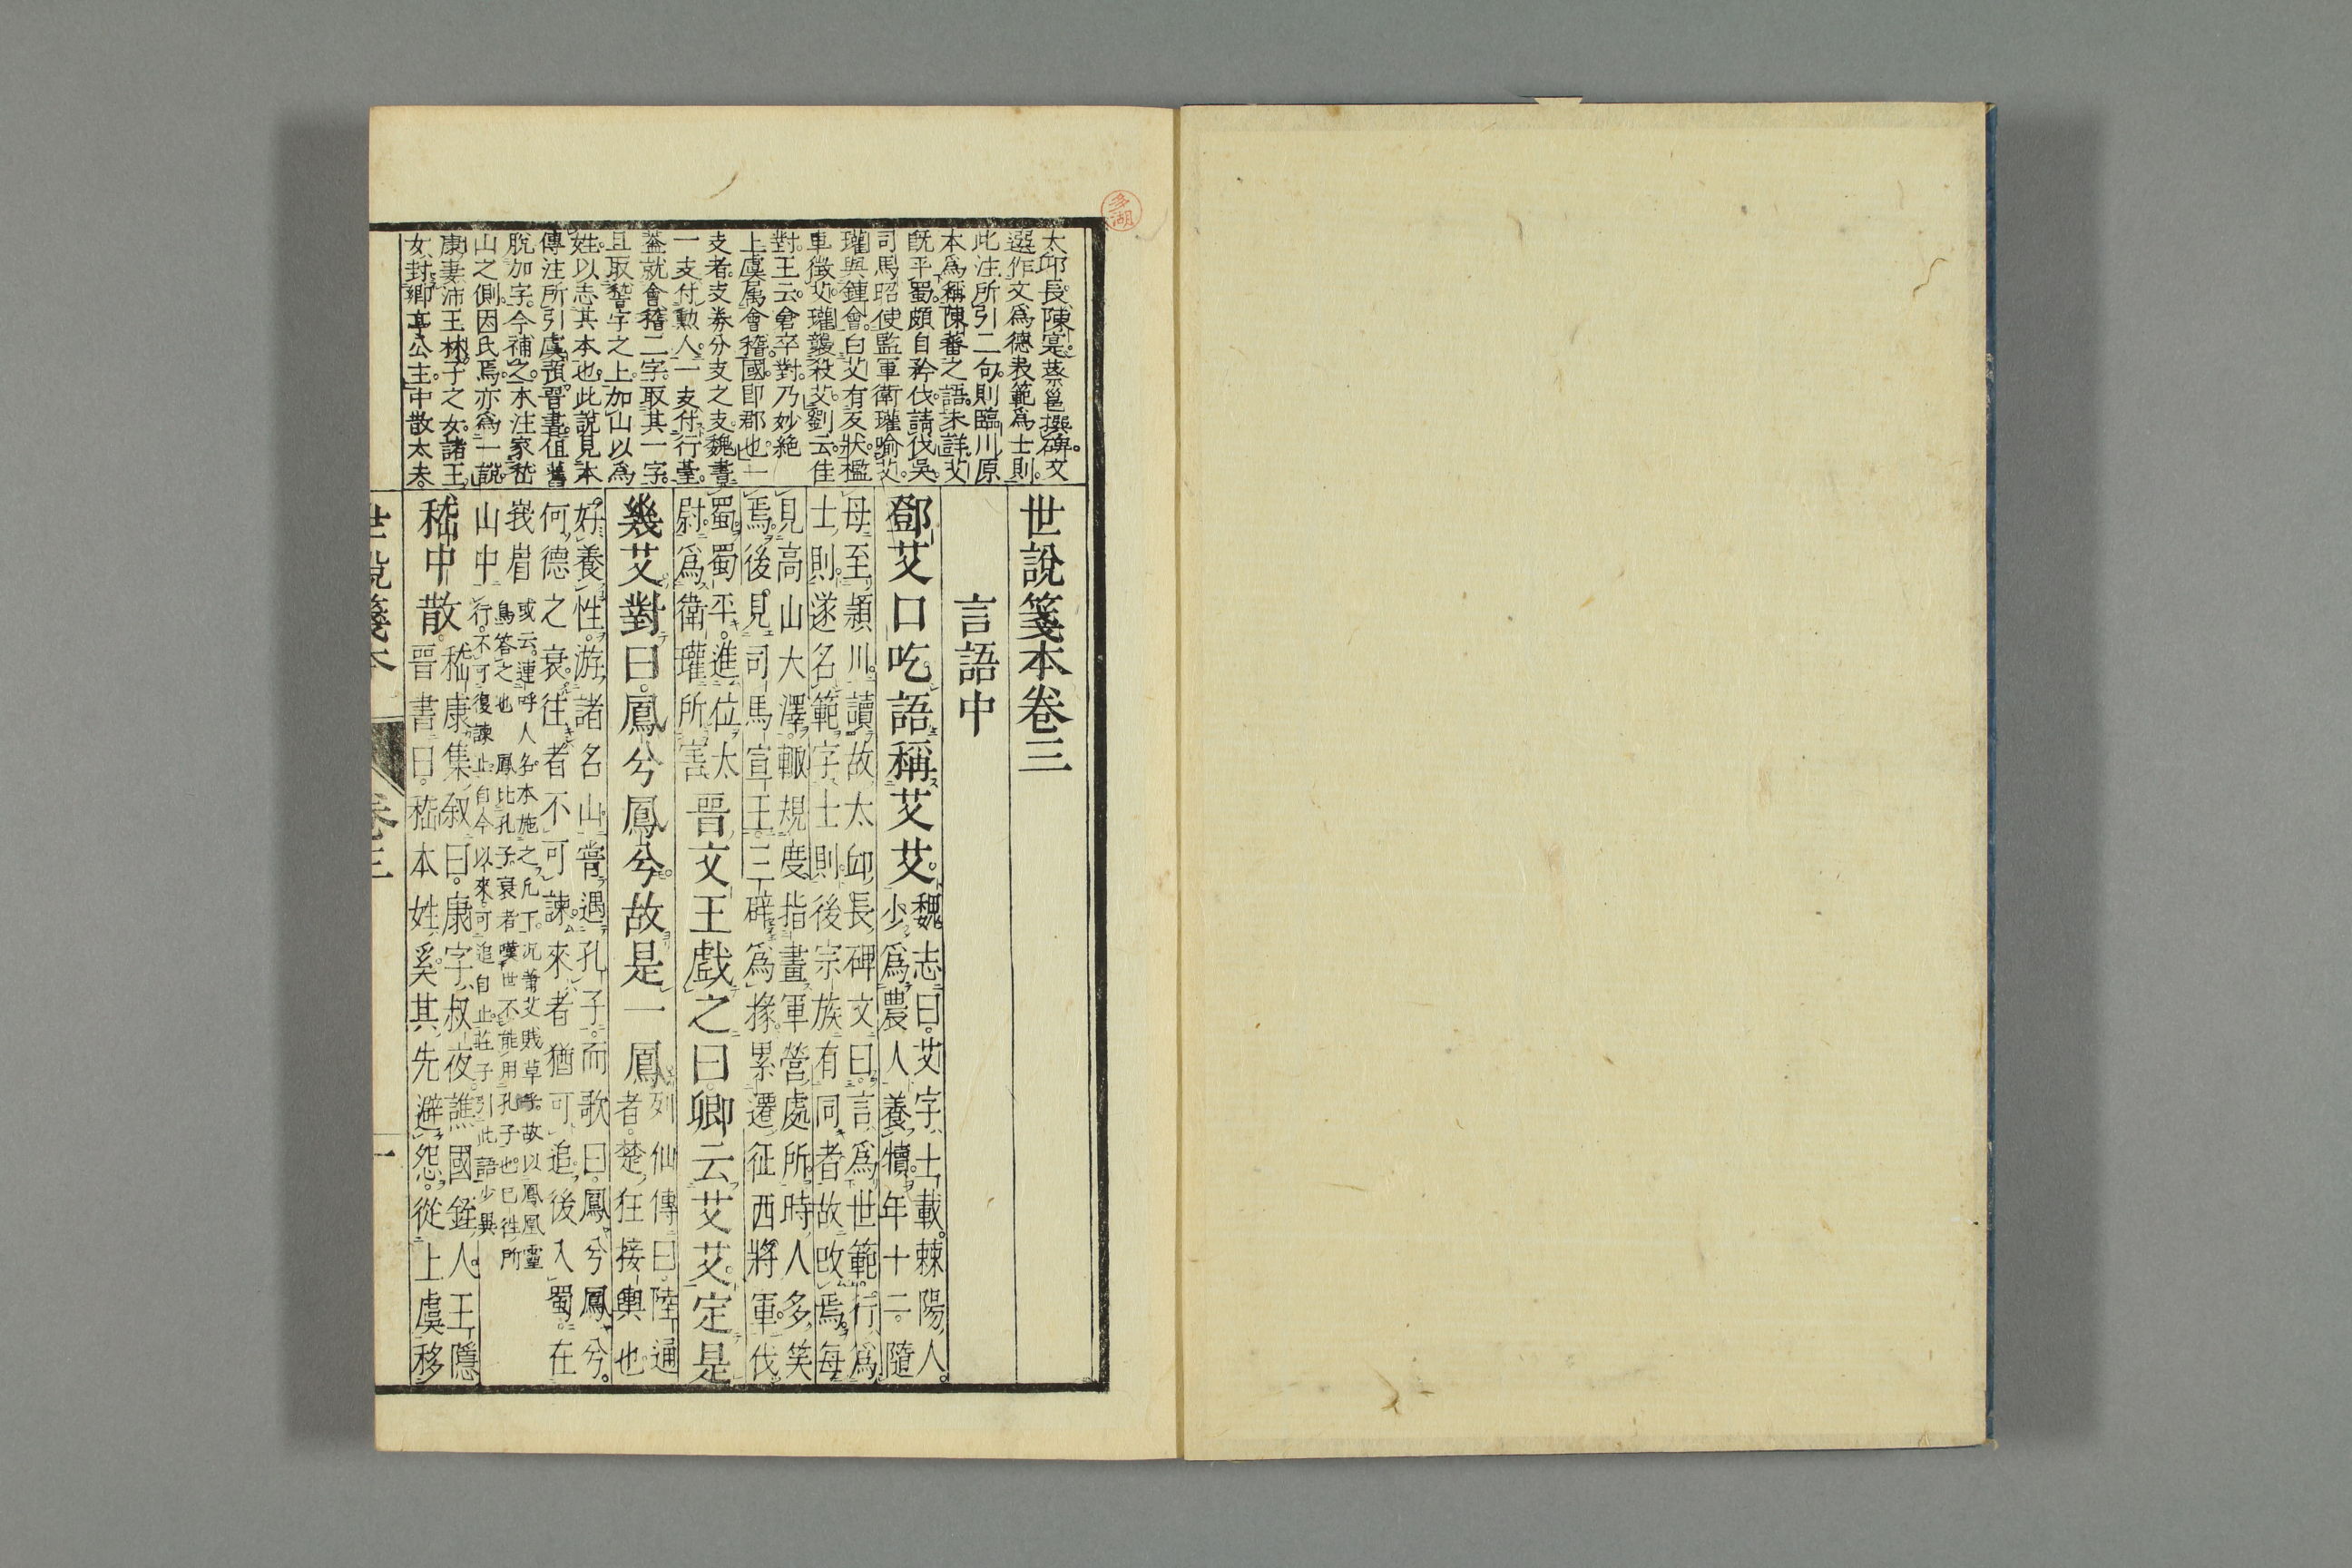 多湖
太邱長陳寔蔡邕撰碑文
選作文爲德表範爲士則
此注所引二句則臨川原
本爲稱陳蕃之語未詳艾
既平蜀頗自矜伐請伐吳
司馬昭使監軍衛瓘喻艾
瓘與鍾會白艾有反狀檻
車徵艾瓘襲殺艾劉云佳
對王云倉卒對乃妙絶
上虞属會稽國即郡也一
支者支券分支之支魏書
一支付勲人一支付行臺
蓋就會稽二字取其一字
且取嵆字之上加山以為
姓以志其本也此說見本
傳注所引虞預晋書但舊
脫加字今補之本注家嵆
山之側因氏焉亦爲一說
康妻沛王林子之女諸王
女封鄉亭公主中散太夫
世說箋本卷三
言語中
鄧艾口吃語稱艾艾魏志曰艾字士載棘陽人
少爲農人養犢年十二隨
母至潁川讀故太邱長碑文曰言爲世範行爲
士則遂名範字士則後宗族有同者故改焉每
見高山大澤輙規度指畫軍營處所時人多笑
焉後見司馬宣王三辟爲掾累遷征西將軍伐
蜀蜀平進位太
尉爲衛瓘所害晋文王戲之曰卿云艾艾定是
幾艾對曰鳳兮鳳兮故是一鳳列仙傳曰陸通
者楚狂接輿也
好養性游諸名山嘗遇孔子而歌曰鳳兮鳳兮
何德之衰往者不可諫來者猶可追後入蜀在
峩眉
山中
或云連呼人名本施之凡下况蕭艾賎草乎故以鳳凰靈
鳥答之也 鳳比孔子衰者嘆世不能用孔子也已往所
行不可復諫止自今以來可追自止莊子引此語少異
嵇中散嵇康集叙曰康字叔夜譙國銍人王隱
晋書曰嵆本姓奚其先避怨從上虞移
世說箋本 卷三 一